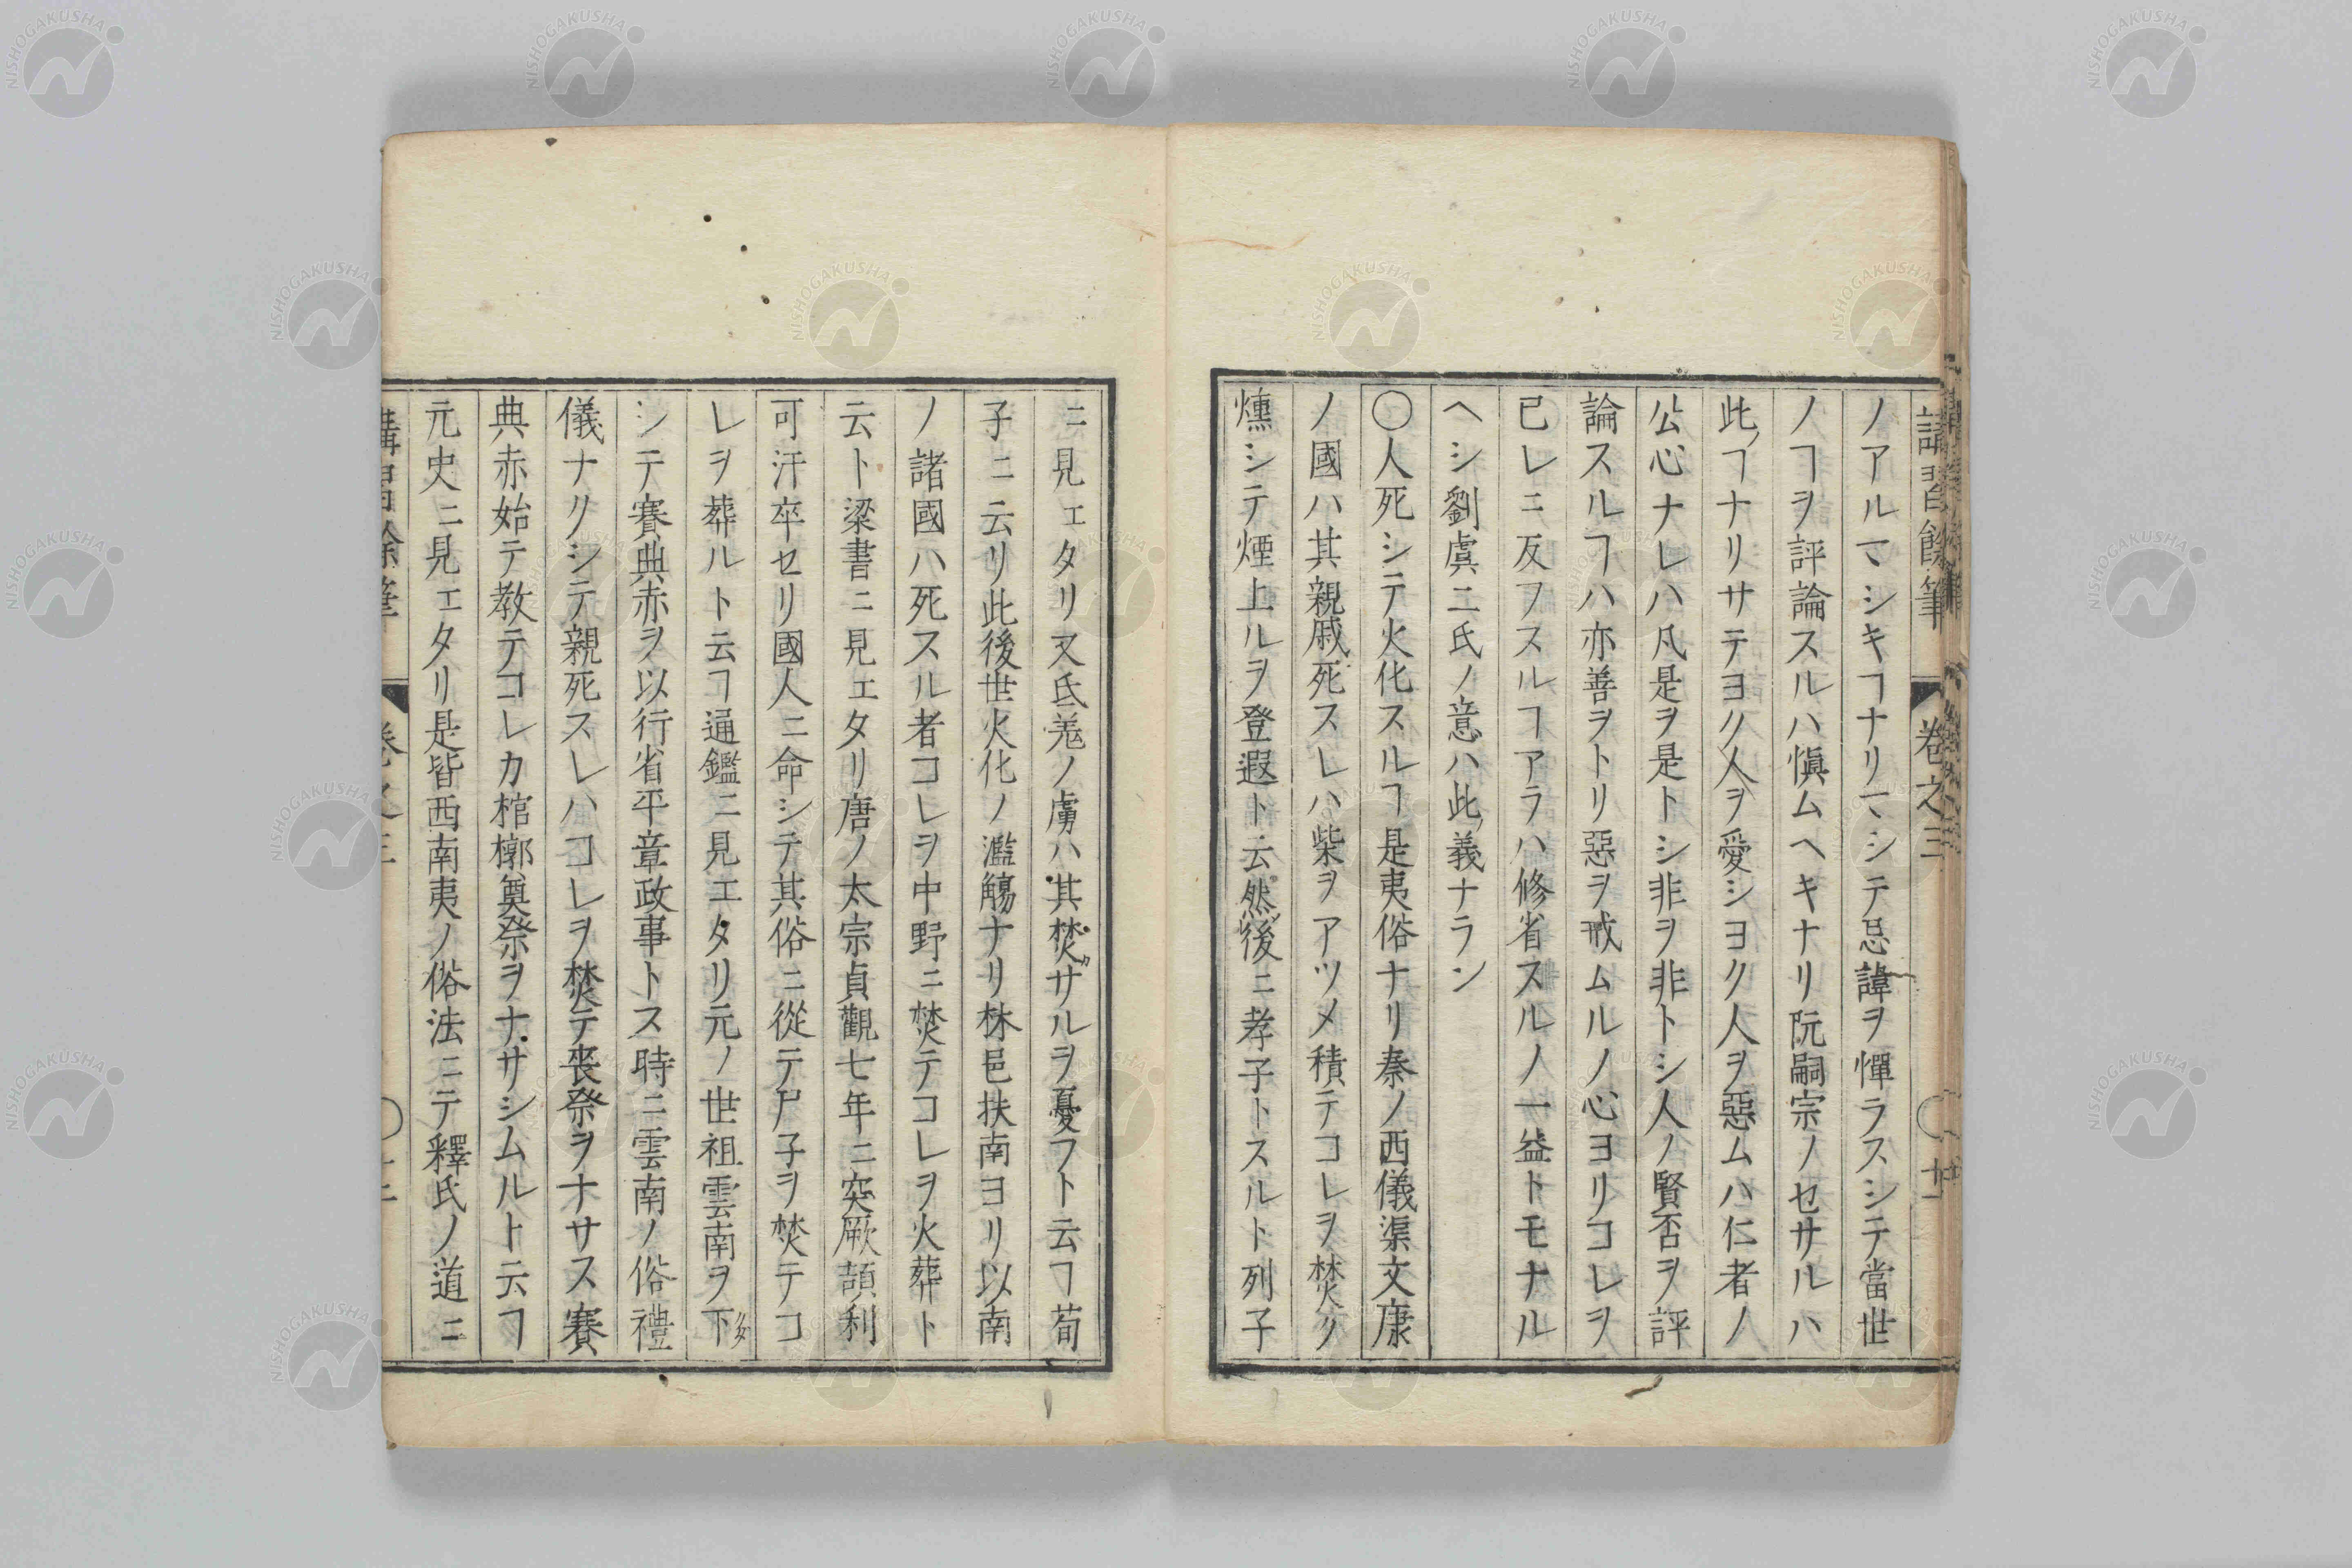 講習餘筆 卷之三 〇 廿
ノアルマシキヿナリマシテ忌諱ヲ憚ラスシテ當世
ノヿヲ評論スルハ愼ムヘキナリ阮嗣宗ノセサルハ
此ノヿナリサテヨク人ヲ愛シヨク人ヲ惡ムハ仁者ノ
公心ナレハ凡是ヲ是トシ非ヲ非トシ人ノ賢否ヲ評
論スルヿハ亦善ヲトリ惡ヲ戒ムルノ心ヨリコレヲ
已レニ反フスルヿアラハ修省スルノ一益トモナル
ヘシ劉虞二氏ノ意ハ此ノ義ナラン
〇人死シテ火化スルヿ是夷俗ナリ秦ノ西儀渠文康
ノ國ハ其親戚死スレハ柴ヲアツメ積テコレヲ焚ク
燻シテ煙上ルヲ登遐ト云然後ニ孝子トスルト列子
ニ見エタリ又氐羌ノ虜ハ其焚カサルヲ憂フト云ヿ荀
子ニ云リ此後世火化ノ濫觴ナリ林邑扶南ヨリ以南
ノ諸國ハ死スル者コレヲ中野ニ焚テコレヲ火葬ト
云ト梁書ニ見エタリ唐ノ太宗貞觀七年ニ突厥頡利
可汗卒セリ國人ニ命シテ其俗ニ從テ尸子ヲ焚テコ
レヲ葬ルト云ヿ通鑑ニ見エタリ元ノ世祖雲南ヲ下タ
シテ賽典赤ヲ以行省平章政事トス時ニ雲南ノ俗禮
儀ナクシテ親死スレハコレヲ焚テ喪祭ヲナサス賽
典赤始テ教テコレカ棺槨奠祭ヲナサシムルト云ヿ
元史ニ見エタリ是皆西南夷ノ俗法ニテ釋氏ノ道ニ